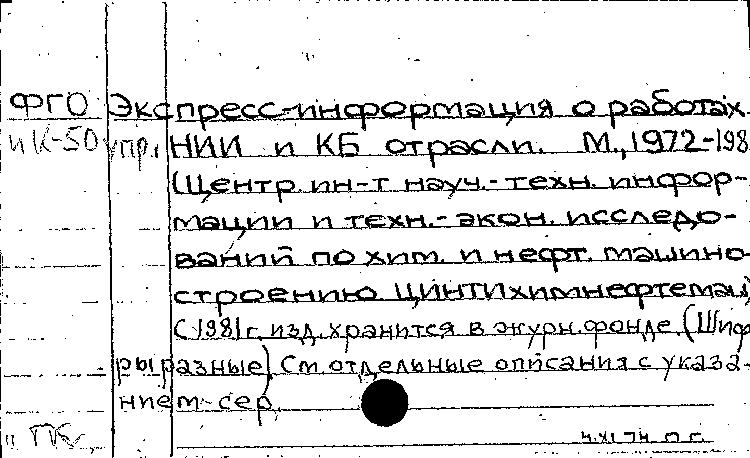 ФГО Экспресс-информация о работах
и К-50 упр. НИИ и КБ отрасли. М., 1972-198
(Центр. ин-т науч.-техн. инфор-
мации и техн.-экон. исследо-
ваний по хим. и нефт. машино-
строению ЦИНТИхимнефтемаш)
С 1981 г. изд. хранится в журн. фонде (Шиф
ры разные). См. отдельные описания с указа-
нием сер.
" ПК
4.XI.74